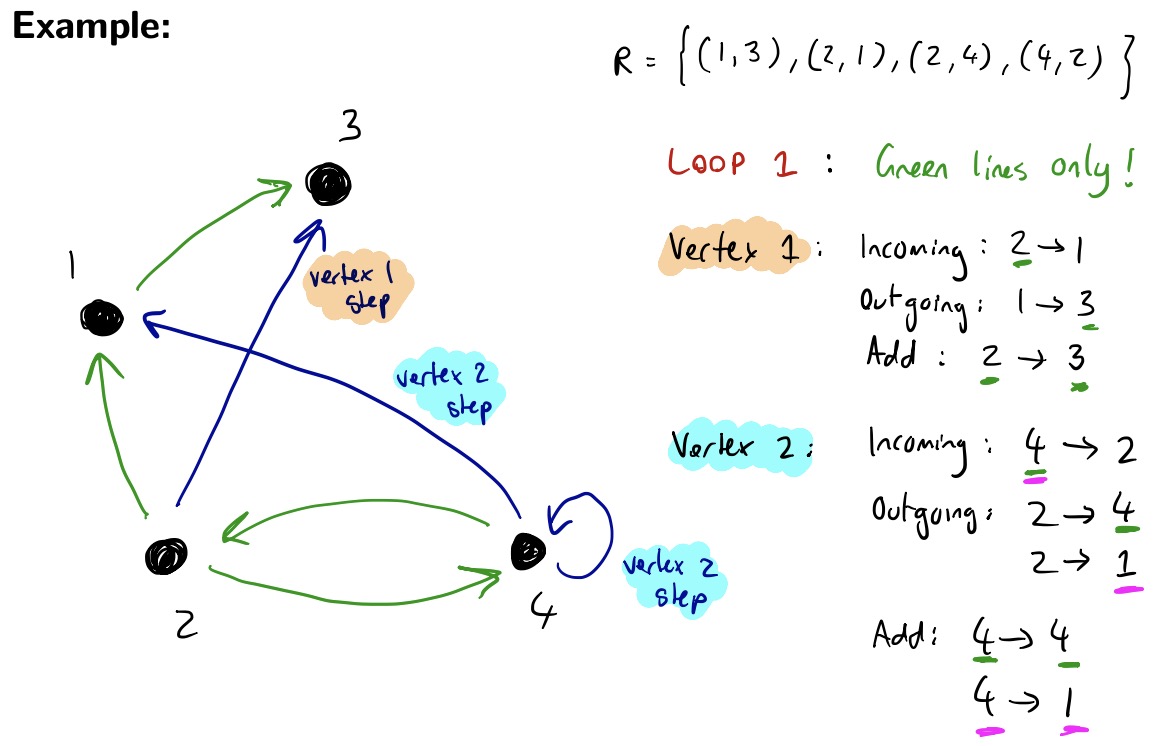 Example:
R = {(1,3),(2,1),(2,4),(4,2)}
3
1
vertex 1
step
vertex 2
step
2
4
vertex 2
step
LOOP 1 : Green lines only!
Vertex 1: Incoming: 2 → 1
Outgoing: 1 → 3
Add: 2 → 3
Vertex 2: Incoming: 4 → 2
Outgoing: 2 → 4
2 → 1
Add: 4 → 4
4 → 1